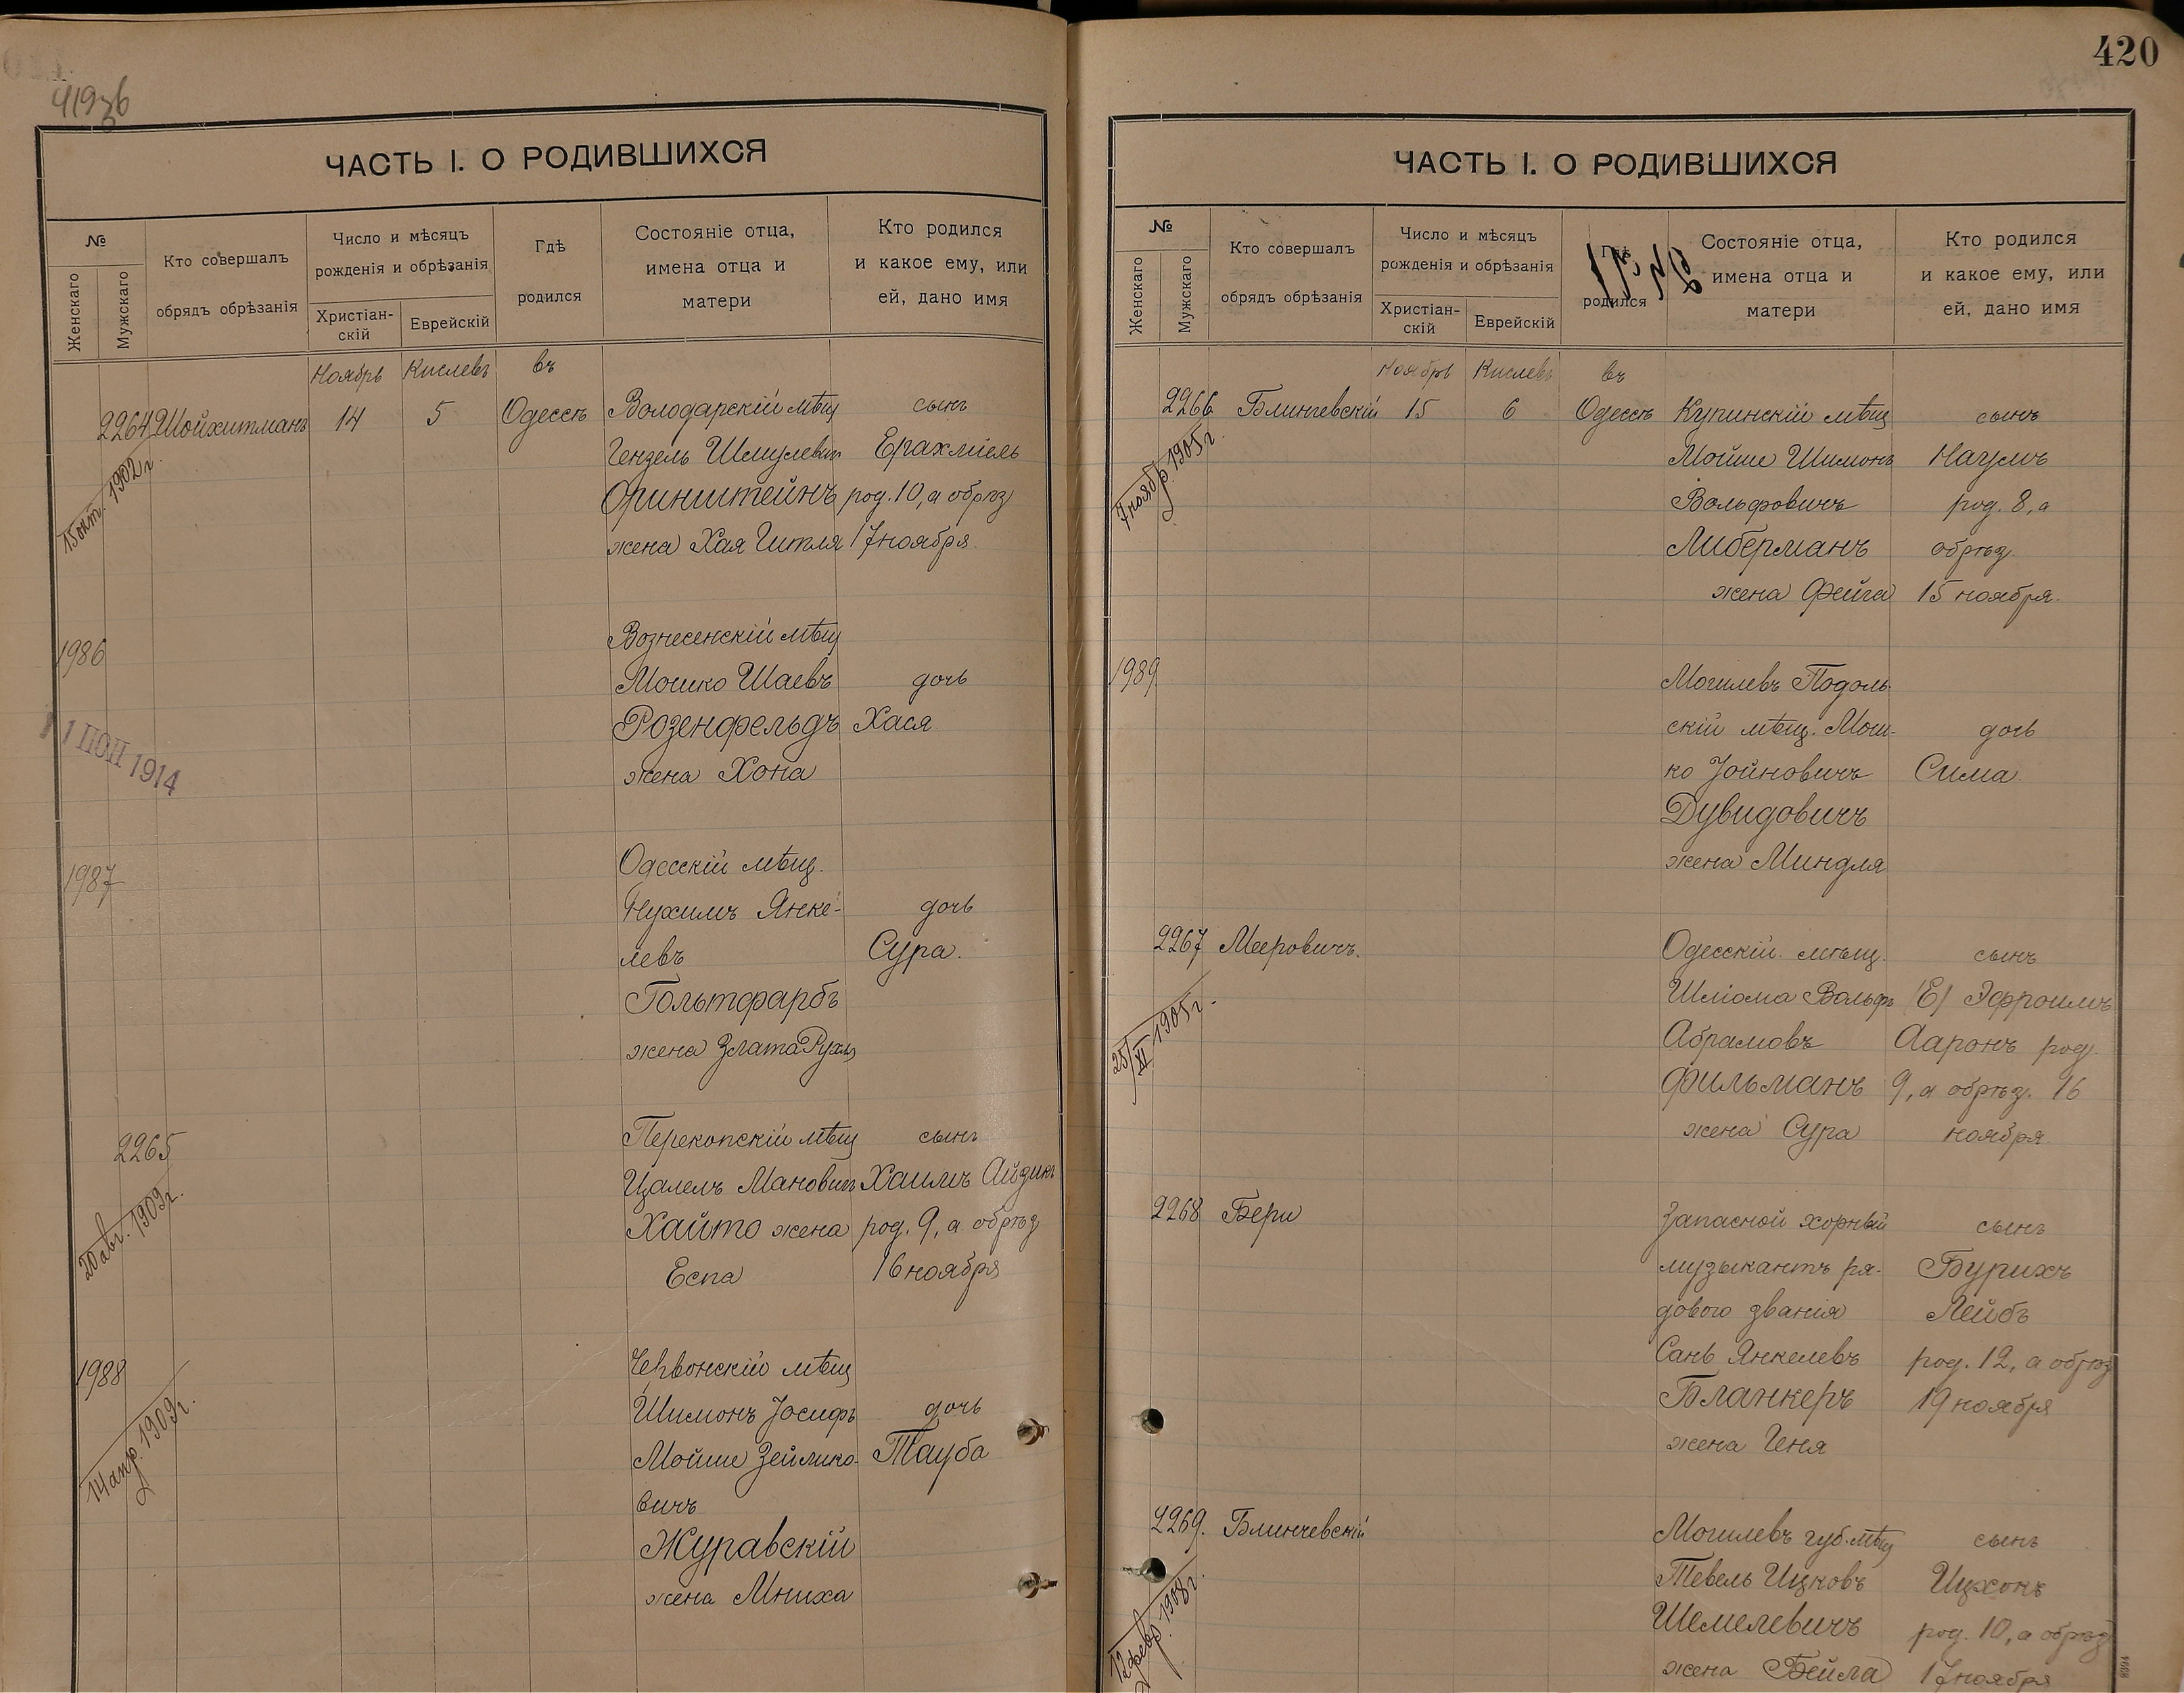 419зб
ЧАСТЬ I. О РОДИВШИХСЯ
№
Женскаго
Мужскаго
Кто совершалъ
обрядъ обрѣзанія
Число и мѣсяцъ
рожденія и обрѣзанія
Христіан-
скій
Еврейскій
Гдѣ
родился
Состояніе отца,
имена отца и
матери
Кто родился
и какое ему, или
ей, дано имя
Ноябрь Кислевъ въ
2264 Шойхитманъ 14 5 Одессѣ Володарскій мѣщ сынъ
Гензель Шмулевич Ерахміель
Оринштейнъ род. 10, а обрѣз
жена Хая Гитля 17 ноября
15 окт. 1902 г.
1986
Вознесенскій мѣщ
Мошко Шаевъ дочь
Розенфельдъ Хася
жена Хона
1914
1987
Одесскій мѣщ.
Нухимъ Янке- дочь
левъ Сура.
Гольтфарбъ
жена Злата Рухля
2265
Перекопскій мѣщ сынъ
Цалель Мановичъ Хаимъ Айзикъ
Хайто жена род. 9, а обрѣз
Еспа 16 ноября
20 авг. 1909 г.
1988
мѣщ
Шимонъ Іосифъ дочь
Мойше Зейлико- Тауба
вичъ
Журавскій
жена Мниха
14 апр. 1909 г.
420
ЧАСТЬ I. О РОДИВШИХСЯ
№
Женскаго
Мужскаго
Кто совершалъ
обрядъ обрѣзанія
Число и мѣсяцъ
рожденія и обрѣзанія
Христіан-
скій
Еврейскій
Гдѣ
родился
Состояніе отца,
имена отца и
матери
Кто родился
и какое ему, или
ей, дано имя
Ноябрь Кислевъ въ
2266 Блинчевскій 15 6 Одессѣ Купинскій мѣщ сынъ
Мойше Шимонъ Наумъ
Вольфовичъ род. 8, а
Либерманъ обрѣз.
жена Фейга 15 ноября.
7 ноябр. 1905 г.
1989
Могилевъ Подоль-
скій мѣщ. Мош- дочь
ко Іойновичъ Сима
Дувидовичъ
жена Миндля
2267 Мееровичъ. Одесскій мѣщ. сынъ
Шліома Вольфъ (Е) Эфроимъ
Абрамовъ Ааронъ род
Фильманъ 9, а обрѣз. 16
жена Сура ноября
25/XI 1905 г.
2268 Бери Запасной хорный сынъ
музыкантъ ря- Бурихъ
дового званія Лейбъ
Сань Янкелевъ род. 12, а обрѣз
Бланкеръ 19 ноября
жена Геня
2269. Блинчевскій Могилевъ губ. мѣщ сынъ
Тевель Ицковъ Ицхокъ
Шемелевичъ род. 10, а обрѣз
жена Бейла 17 ноября
12 февр. 1908 г.